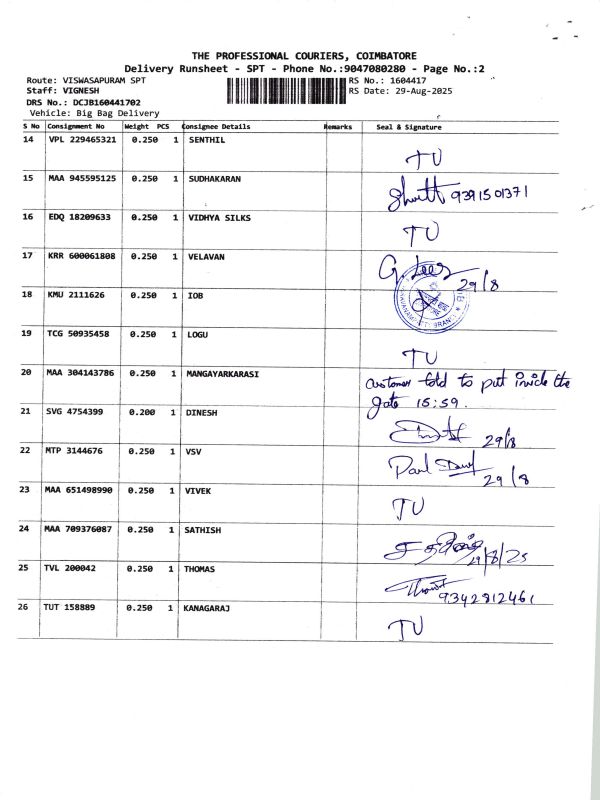 THE PROFESSIONAL COURIERS, COIMBATORE
Delivery Runsheet - SPT - Phone No.:9047080280 - Page No.:2
Route: VISWASAPURAM SPT RS No.: 1604417
Staff: VIGNESH RS Date: 29-Aug-2025
DRS No.: DCJB160441702
Vehicle: Big Bag Delivery
S No Consignment No Weight PCS Consignee Details Remarks Seal & Signature
14 VPL 229465321 0.250 1 SENTHIL TU
15 MAA 945595125 0.250 1 SUDHAKARAN 9391501371
16 EDQ 18209633 0.250 1 VIDHYA SILKS TU
17 KRR 600061808 0.250 1 VELAVAN 29/8
18 KMU 2111626 0.250 1 IOB
19 TCG 50935458 0.250 1 LOGU TU
20 MAA 304143786 0.250 1 MANGAYARKARASI customer told to put inside the
gate 15:59.
21 SVG 4754399 0.200 1 DINESH 29/8
22 MTP 3144676 0.250 1 VSV Paul 29/8
23 MAA 651498990 0.250 1 VIVEK TU
24 MAA 709376087 0.250 1 SATHISH 29/8/25
25 TVL 200042 0.250 1 THOMAS 9342812461
26 TUT 158889 0.250 1 KANAGARAJ TU